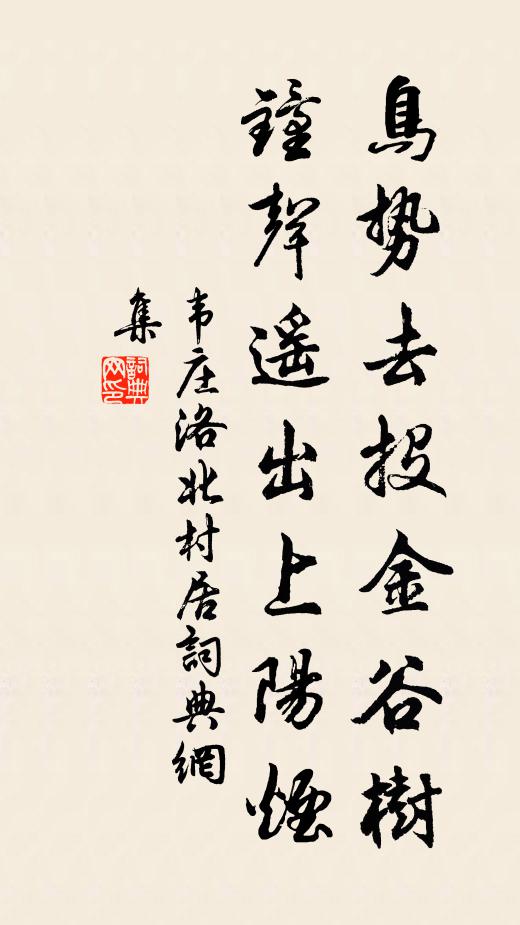 鳥勢去投金谷樹
鐘聲遥出上陽煙
韦庄洛北村居詞典網
集
詞典
网印